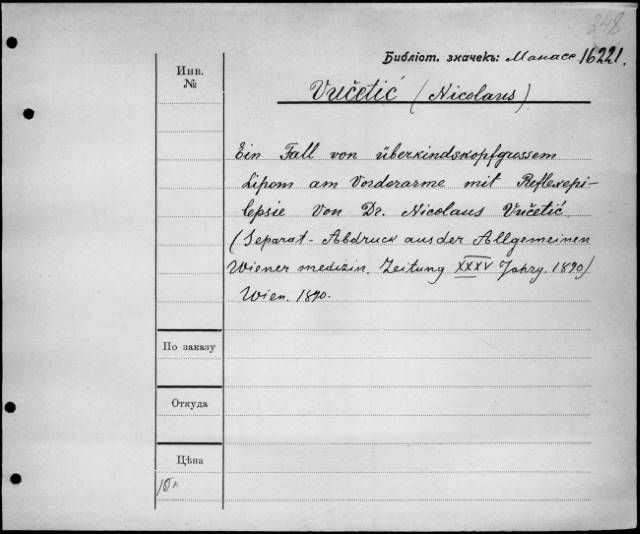 248
Библіот. значекъ: Манасс 16221.
Инв.
№
Vučetić (Nicolaus)
Ein Fall von überkindskopfgrossem
Lipom am Vorderarme mit Reflexepi-
lepsie Von Dr. Nicolaus Vučetić.
(Separat-Abdruck aus der Allgemeinen
Wiener medizin. Zeitung XXXV Jahrg. 1890)
Wien. 1890.
По заказу
Откуда
Цѣна